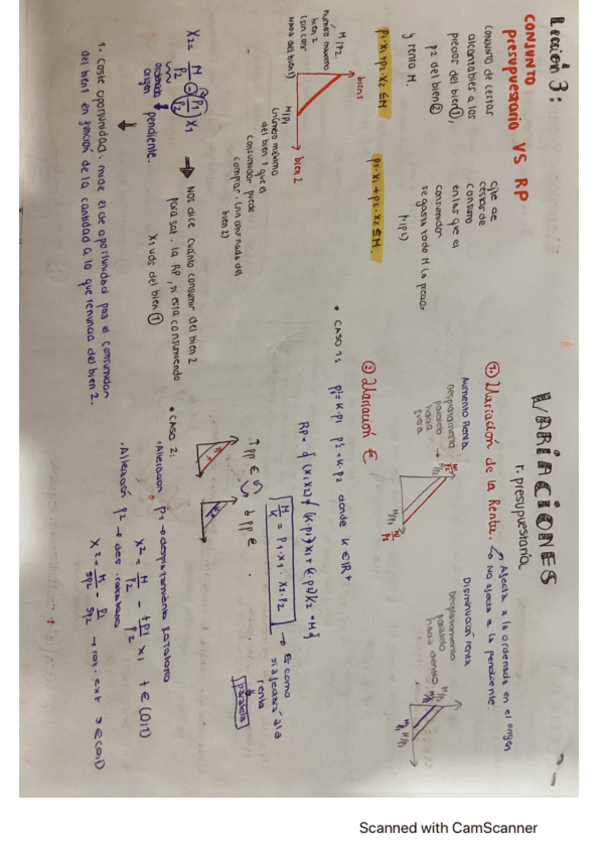 Lección 3:
CONJUNTO
presupuestario VS RP
CONJUNTO DE CESTAS
alcanzables a los
precios del bien ①,
p2 del bien ②
y renta M.
p1·x1+p2·x2 ≤ M
cestas de
consumo
en las que el
consumidor
se gasta todo M (a precios
p1·x1+p2·x2 ≤ M.
M/P2
número máximo
bien 2
(sin consr
nada del bien 1)
bien 1
bien 2
M/P1
(número máximo
del bien 1 que el
consumidor puede
comprar.
bien 2)
X2 = M/P2 - P1/P2 X1
ordenada
origen
pendiente.
→ Nos dice cuánto consumir del bien 2
para sat. la RP, si está consumiendo
X1 uds del bien ①
1. Coste oportunidad: mide el de oportunidad para el consumidor
del bien 1 en función de la cantidad a la que renuncia del bien 2.
VARIACIONES
r. presupuestaria
① Variación de la Renta.
Afecta a la ordenada en el origen
No afecta a la pendiente.
Aumento Renta
Desplazamiento
paralelo
hacia
fuera
M/P1
Disminución renta
Desplazamiento
paralelo
hacia dentro
M/P1
② Variación €
• CASO 1:
p1'=k·p1 p2'=k·p2 donde k ∈ IR+
M/K = P1·x1·x2·P2
→ Es como
si afectara a la
renta
paralela
↑ pp € ↓ pp €
• CASO 2:
• Alteración p1 → desplazamiento rotatorio
X2 = M/P2 - tP1/P2 X1 t ∈ (0,1)
• Alteración p2 → des. rotatorio
X2 = M/SP2 - P1/SP2 → rot ext s ∈ (0,1)
Scanned with CamScanner